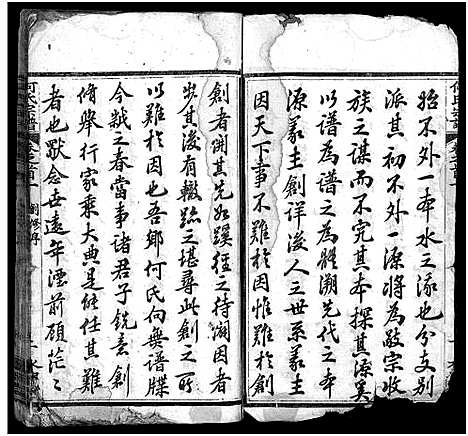 始不外一本水之添也分支別
派其初不外一源將為敬宗收
族之謀而不究其本探其源奚
以譜為譜之為體溯先代之本
源義主創詳後人之世系義主
因天下事不難於因惟難於創
創者開其先如蹊徑之待開因者
步其後有轍跡之堪尋此創之所
以難於因也吾鄉何氏向無譜牒
今戩之春當事諸君子銳意創
脩舉行家乘大典是能任其難
者也默念世遠年湮前顧茫々
何氏宗譜
卷之首一
創修序
二
何氏宗譜
卷之首一